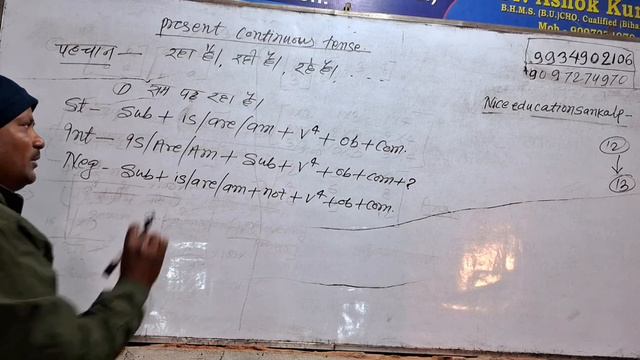 Ashok Kum
B.H.M.S. (B.U.)CHO, Qualified (Bihar
Mob - 
present continuous tense
पहचान — रहा है।, रही है।, रहे है। . . . .
9934902106
9097274970
Nice education sankalp -
① राम पढ़ रहा है।
St - Sub + is/are/am + V⁴ + ob + Com.
Int - Is/Are/Am + Sub + V⁴ + ob + com + ?
Neg - Sub + is/are/am + not + V⁴ + ob + com.
12
13